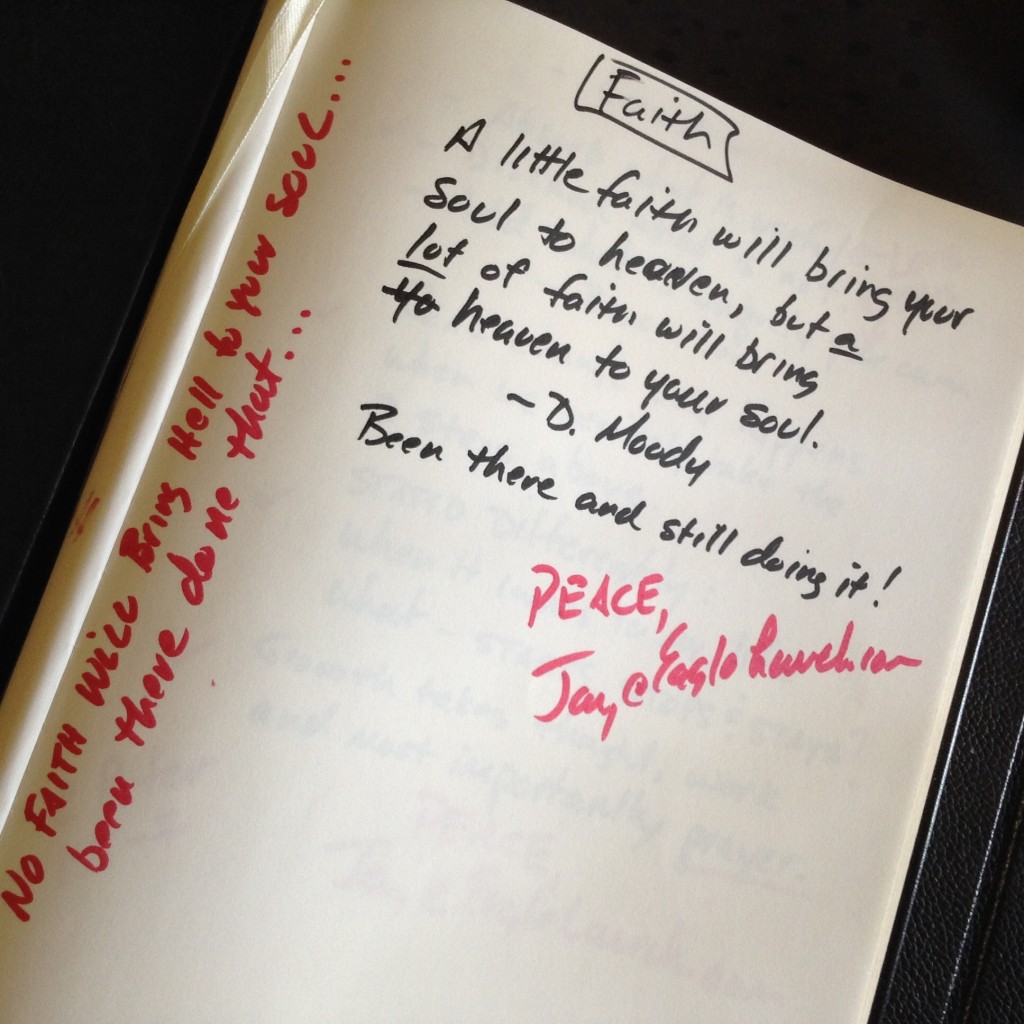 Faith
A little faith will bring your
soul to heaven, but a
lot of faith will bring
to heaven to your soul.
~ D. Moody
Been there and still doing it!
PEACE,
Jay@EagleLaunch.com
NO FAITH WILL Bring Hell to your SOUL...
been there done that...